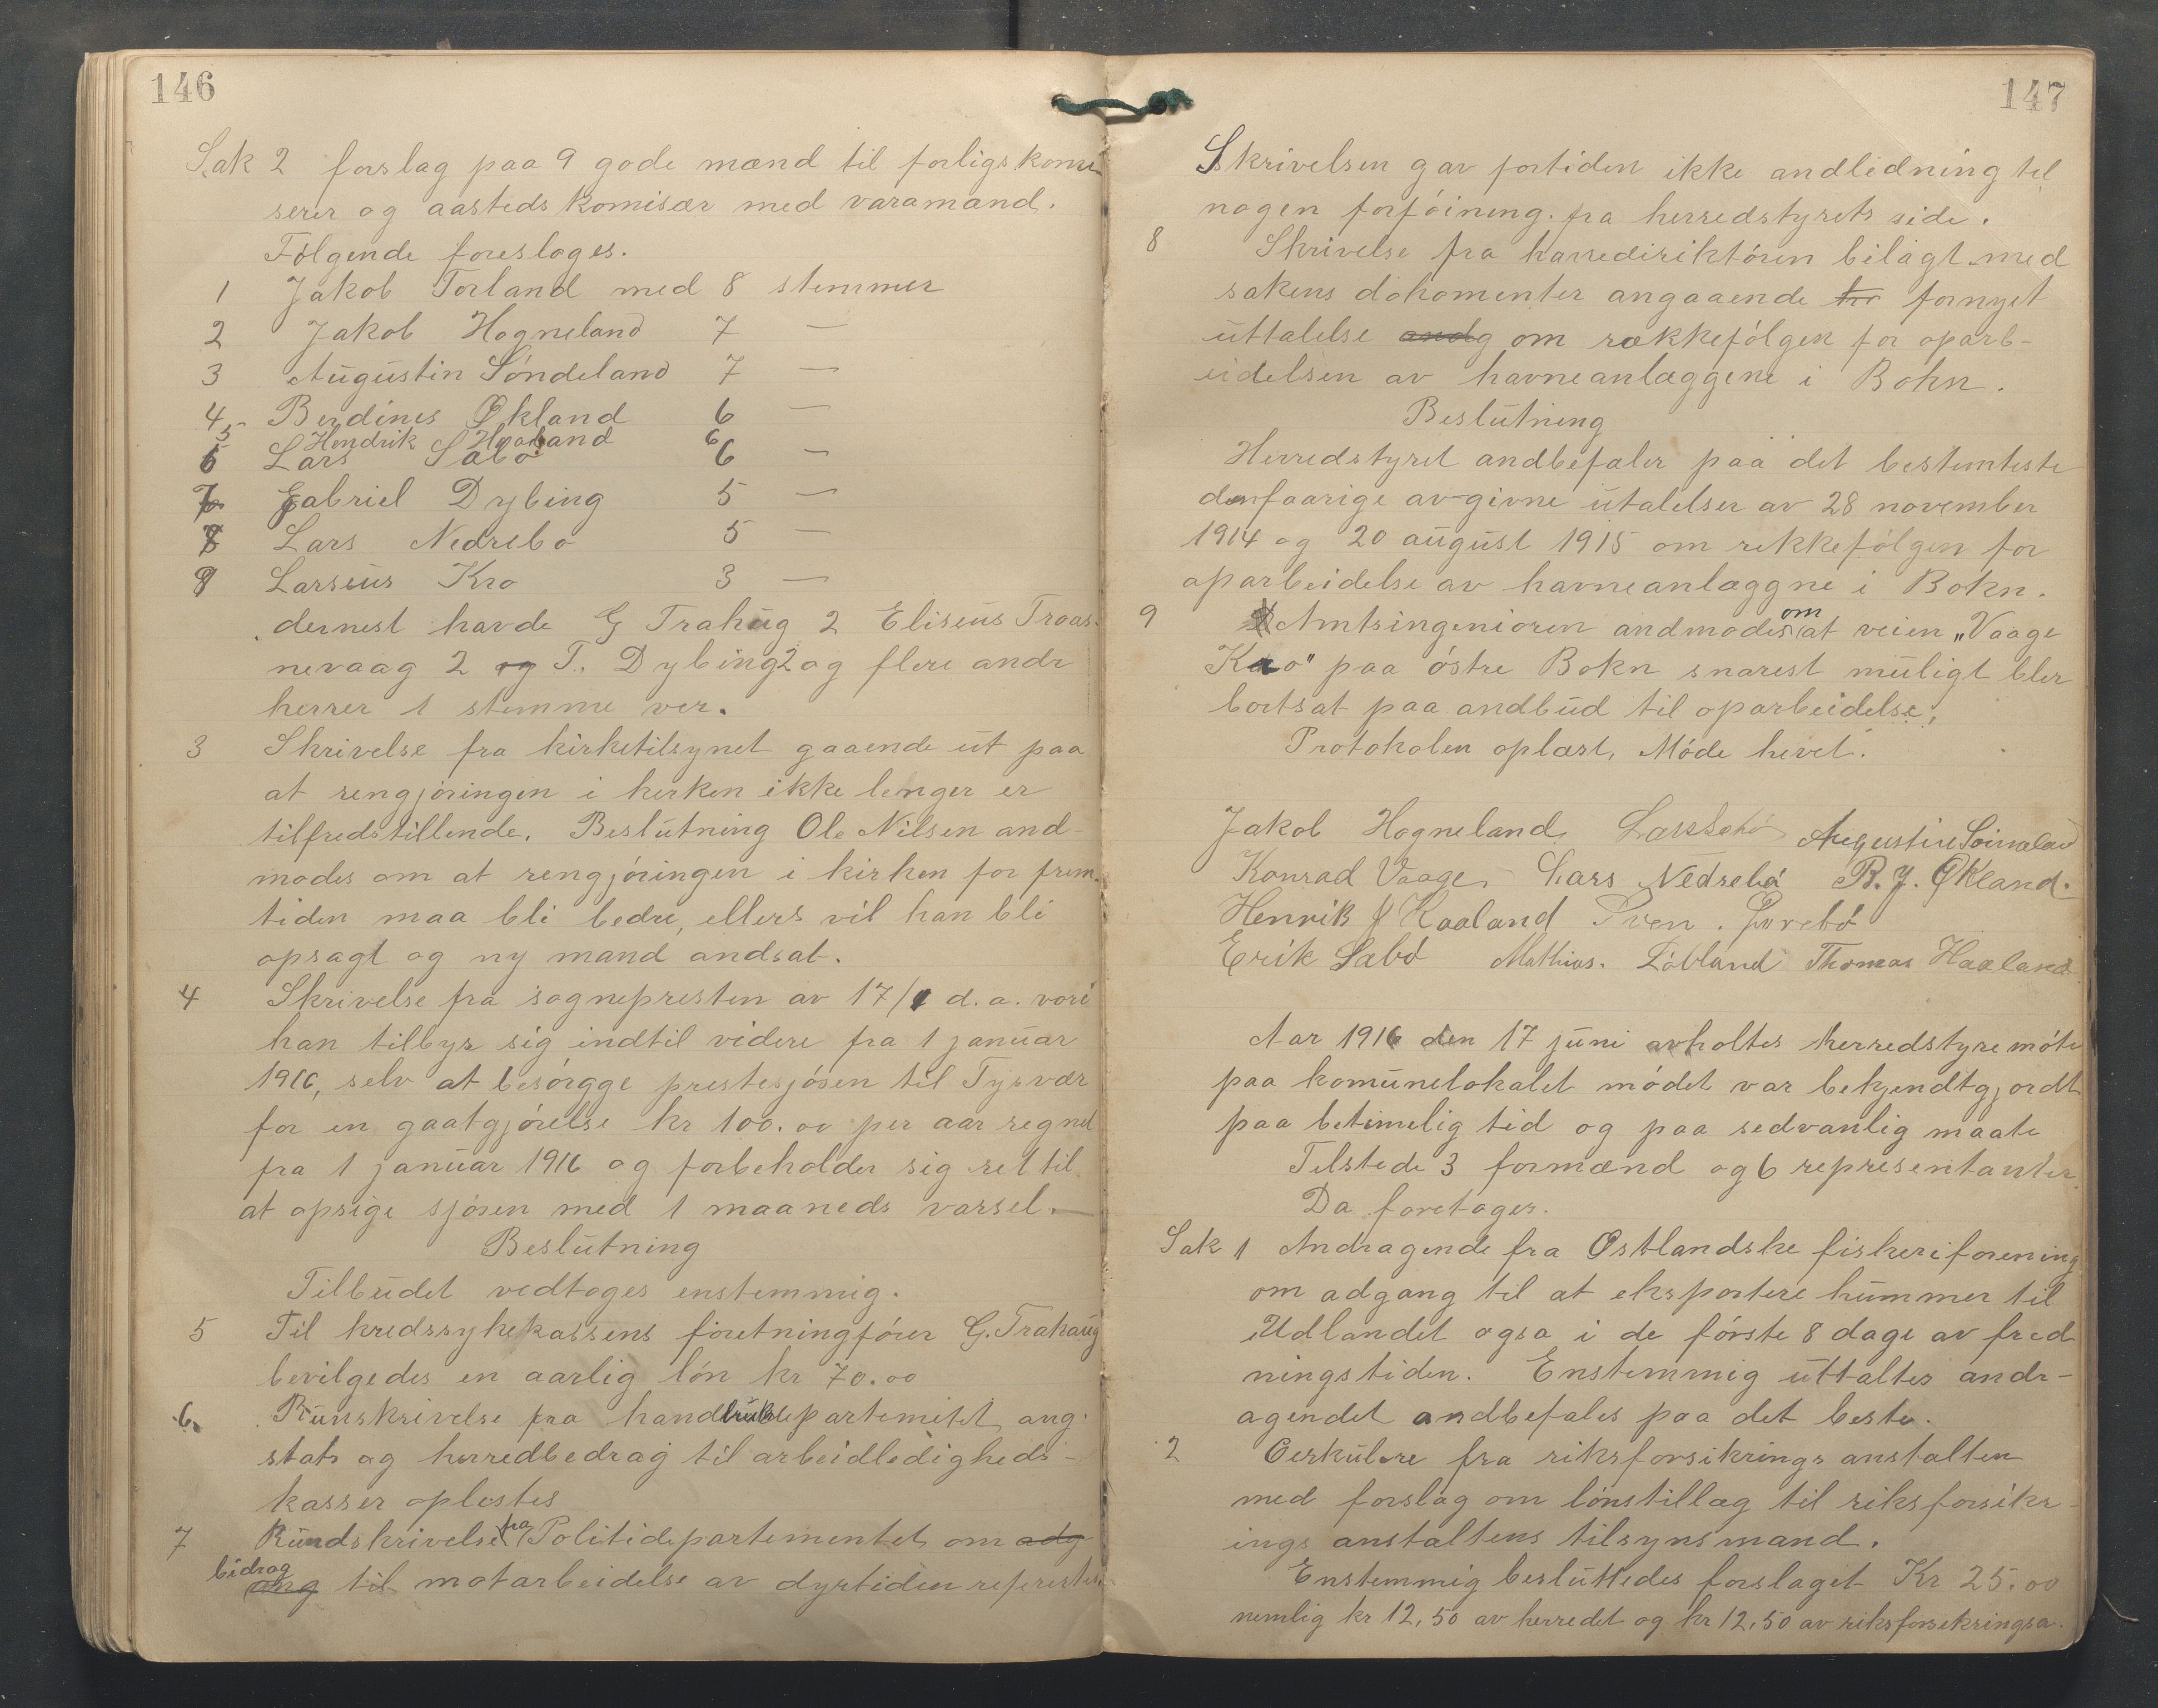 146
Sak 2 forslag paa 9 gode mænd til forligskomi-
serer og aasteds komisær med varamand.
Følgende foresloges.
1 Jakob Torland med 8 stemmer
2 Jakob Hogneland 7 —
3 Augustin Sóndeland 7 —
4 Berdines Økland 6 —
5 Hendrik Haaland 6
6 Lars Sæbo 6 —
7 Gabriel Dybing 5 —
8 Lars Nedrebo 5 —
9 Larseus Kro 3 —
dernest havde G Trahaug 2 Eliseus Troas-
nevaag 2 og T. Dybing 2 og flere andr
herrer 1 stemme ver.
3 Skrivelse fra kirketilsynet gaaende ut paa
at rengjøringen i kerken ikke lenger er
tilfredstillende. Beslutning Ole Nilsen and-
modes om at rengjóringen i kirken for frem-
tiden maa bli bedre, ellers vil han bli
opsagt og ny mand andsat.
4 Skrivelse fra sognepresten av 17/1 d.a. vori
han tilbyr sig indtil videre fra 1 januar
1916, selv at besórgge prestesjósen til Tysvær
for en gaatgjórelse kr 100.00 per aar regnet
fra 1 januar 1916 og forbeholder sig ret til
at opsige sjósen med 1 maaneds varsel. —
Beslutning
Tilbudet vedtoges enstemmig.
5 Til kredssykekassens foretningfórer G. Trahaug
bevilgedes en aarlig lón kr 70.00
6. Runskrivelse fra handelsdepartemetet ang.
stats og herredbedrag til arbeidledigheds-
kasser oplestes
7 Rundskrivelse fra Politidepartementet om adg
bidrag
ang til motarbeidelse av dyrtiden referertes.
147
Skrivelsen gav fortiden ikke andledning til
nogen forfóining fra herredstyrets side.
8 Skrivelse fra havnediriktóren bilagt med
sakens dokomenter angaaende for fornyet
uttalelse andg om rækkefólgen for oparb-
eidelsen av havneanlæggene i Bokn.
Beslutning
Herredstyret andbefaler paa det bestemteste
den faarige avgivne utalelser av 28 november
1914 og 20 august 1915 om rekkefólgen for
oparbeidelse av havneanlæggne i Bokn.
9 Amtsingenioren andmodes om at veien „Vaage
Kro" paa óstre Bokn snarest muligt bler
bortsat paa andbud til oparbeidelse.
Protokolen oplæst, Móde hevet.
Jakob Hogneland. Lars Sebó Augustin Soinland
Konrad Vaage. Lars Nedrebó B. J. Økland.
Henrik J Haaland Sven. Øvrebó
Erik Sæbó Mathias. Lóvland Thomas Haaland
Aar 1916 den 17 juni avholtes herredstyre móte
paa komunelokalet módet var bekjendtgjordt
paa betimelig tid og paa sedvanlig maate
Tilstede 3 formænd og 6 representanter.
Da foretoges.
Sak 1 Andragende fra Østlandske fiskeriforening
om adgang til at eksportere hummer til
Udlandet ogsa i de fórste 8 dage av fred
ningstiden. Enstemmig uttaltes andr-
agendet andbefales paa det beste.
2 Cerkulere fra riksforsikrings anstalten
med forslag om lónstillæg til riksforsikr-
ings anstaltens tilsynsmand.
Enstemmig besluttedes forslaget Kr 25.00
nemlig kr 12,50 av herredet og kr 12,50 av riksforsekringsa.